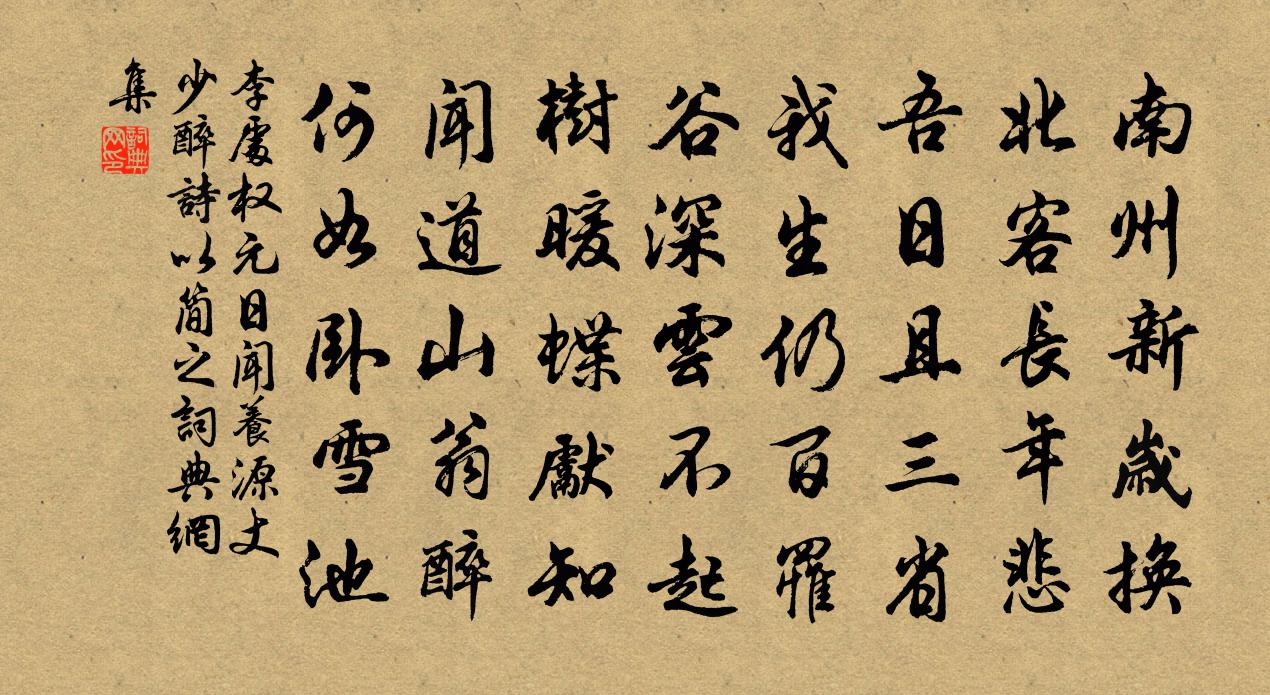 南州新歲換
北客長年悲
吾日且三省
我生仍百罹
谷深雲不起
樹暖蝶獻知
聞道山翁醉
何如臥雪池
李處权元日聞養源丈
少醉詩以簡之詞典網
集
詞典网印